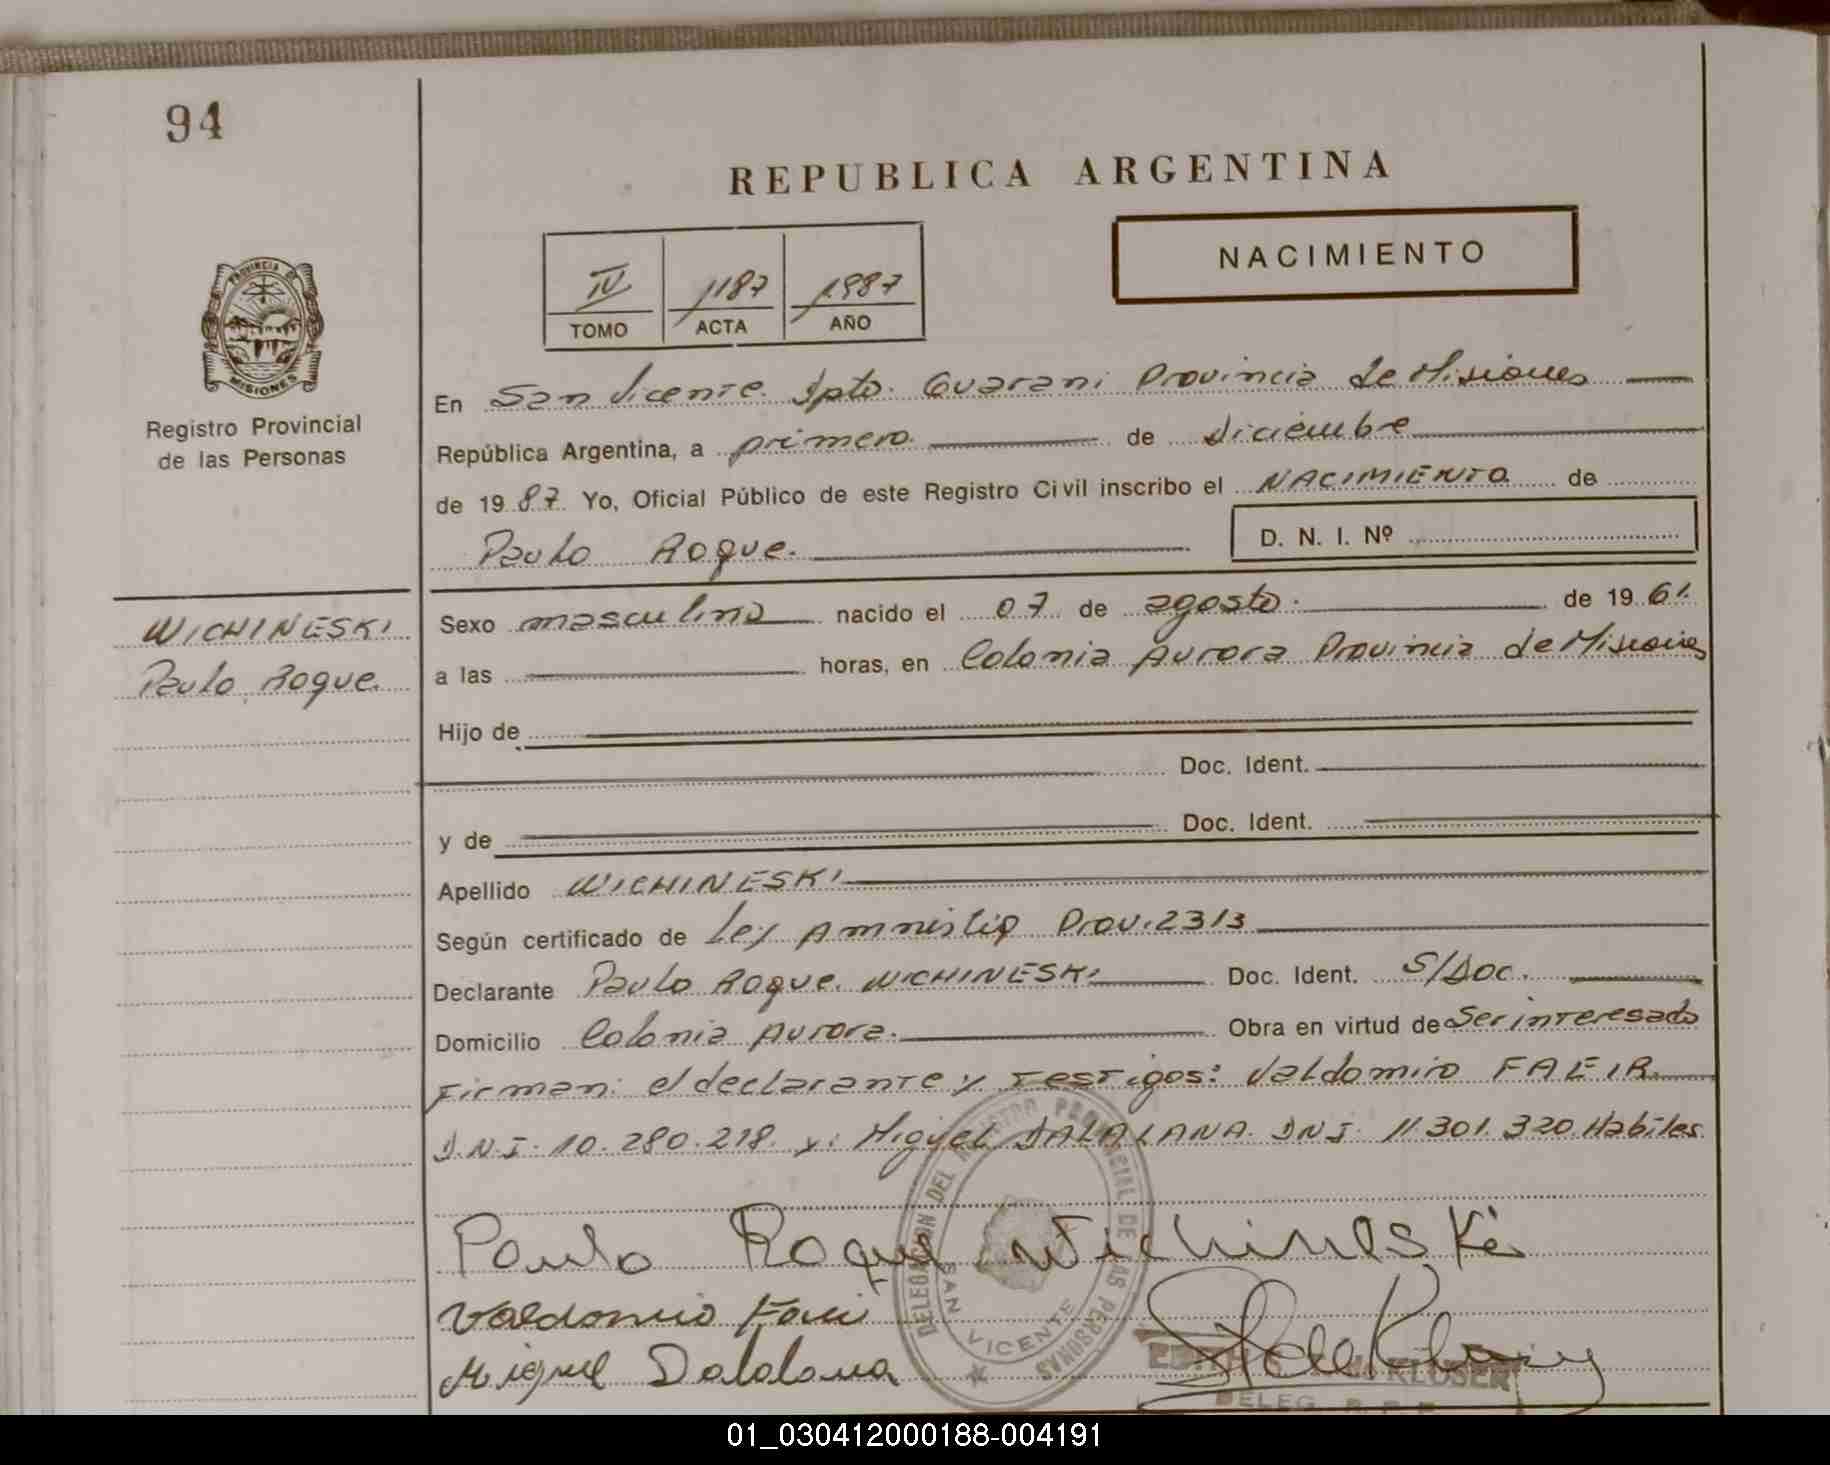 94
REPUBLICA ARGENTINA
IV 1187 1987
TOMO ACTA AÑO
NACIMIENTO
PROVINCIA DE
MISIONES
Registro Provincial
de las Personas
En San Vicente. Dpto. Guarani Provincia de Misiones
República Argentina, a primero. de diciembre
de 19 87 Yo, Oficial Público de este Registro Civil inscribo el NACIMIENTO de
Paulo Roque.
D. N. I. Nº
WICHINESKI
Paulo Roque.
Sexo masculino nacido el 07 de agosto. de 19 61.
a las horas, en Colonia Aurora Provincia de Misiones
Hijo de
Doc. Ident.
y de Doc. Ident.
Apellido WICHINESKI
Según certificado de Ley Amnistia Prov. 2313
Declarante Paulo Roque WICHINESKI Doc. Ident. S/Doc.
Domicilio Colonia Aurora. Obra en virtud de Ser interesado
Firman: el declarante y testigos: Valdomiro FAEIR.
D.N.I. 10.280.218. y: Miguel DALALANA. DNI. 11.301.320. Habiles
DELEGACION DEL REGISTRO PROVINCIAL DE LAS PERSONAS
SAN VICENTE
Paulo Roque Wichineski
Valdomiro
Miguel Dalalana
KLOSER
DELEG. R. P. P.
01_030412000188-004191